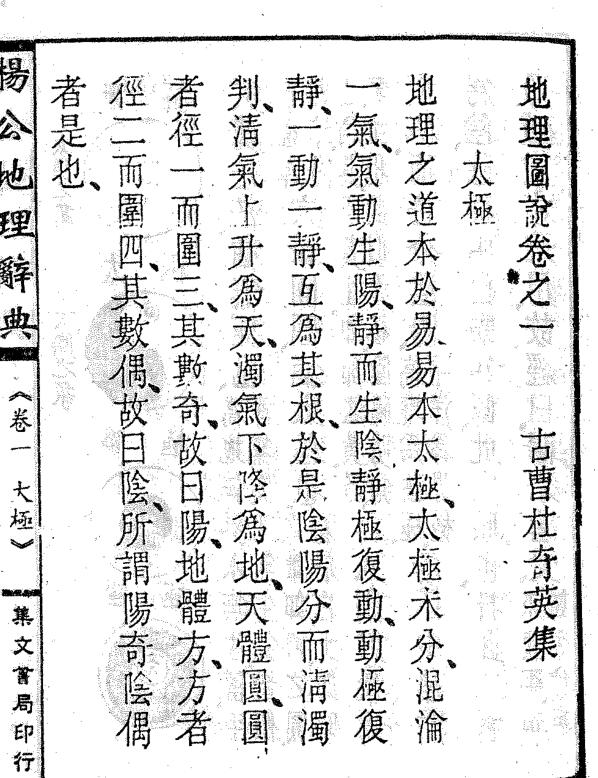 地理圖說卷之一　古曹杜奇英集
太極
地理之道本於易易本太極、太極未分、混淪
一氣、氣動生陽、靜而生陰靜極復動、動極復
靜、一動一靜、互爲其根、於是陰陽分而淸濁
判、淸氣上升爲天、濁氣下降爲地、天體圓、圓
者徑一而圍三、其數奇、故曰陽、地體方、方者
徑二而圍四、其數偶、故曰陰、所謂陽奇陰偶
者是也、
楊公地理辭典
《卷一 大極》
集文書局印行